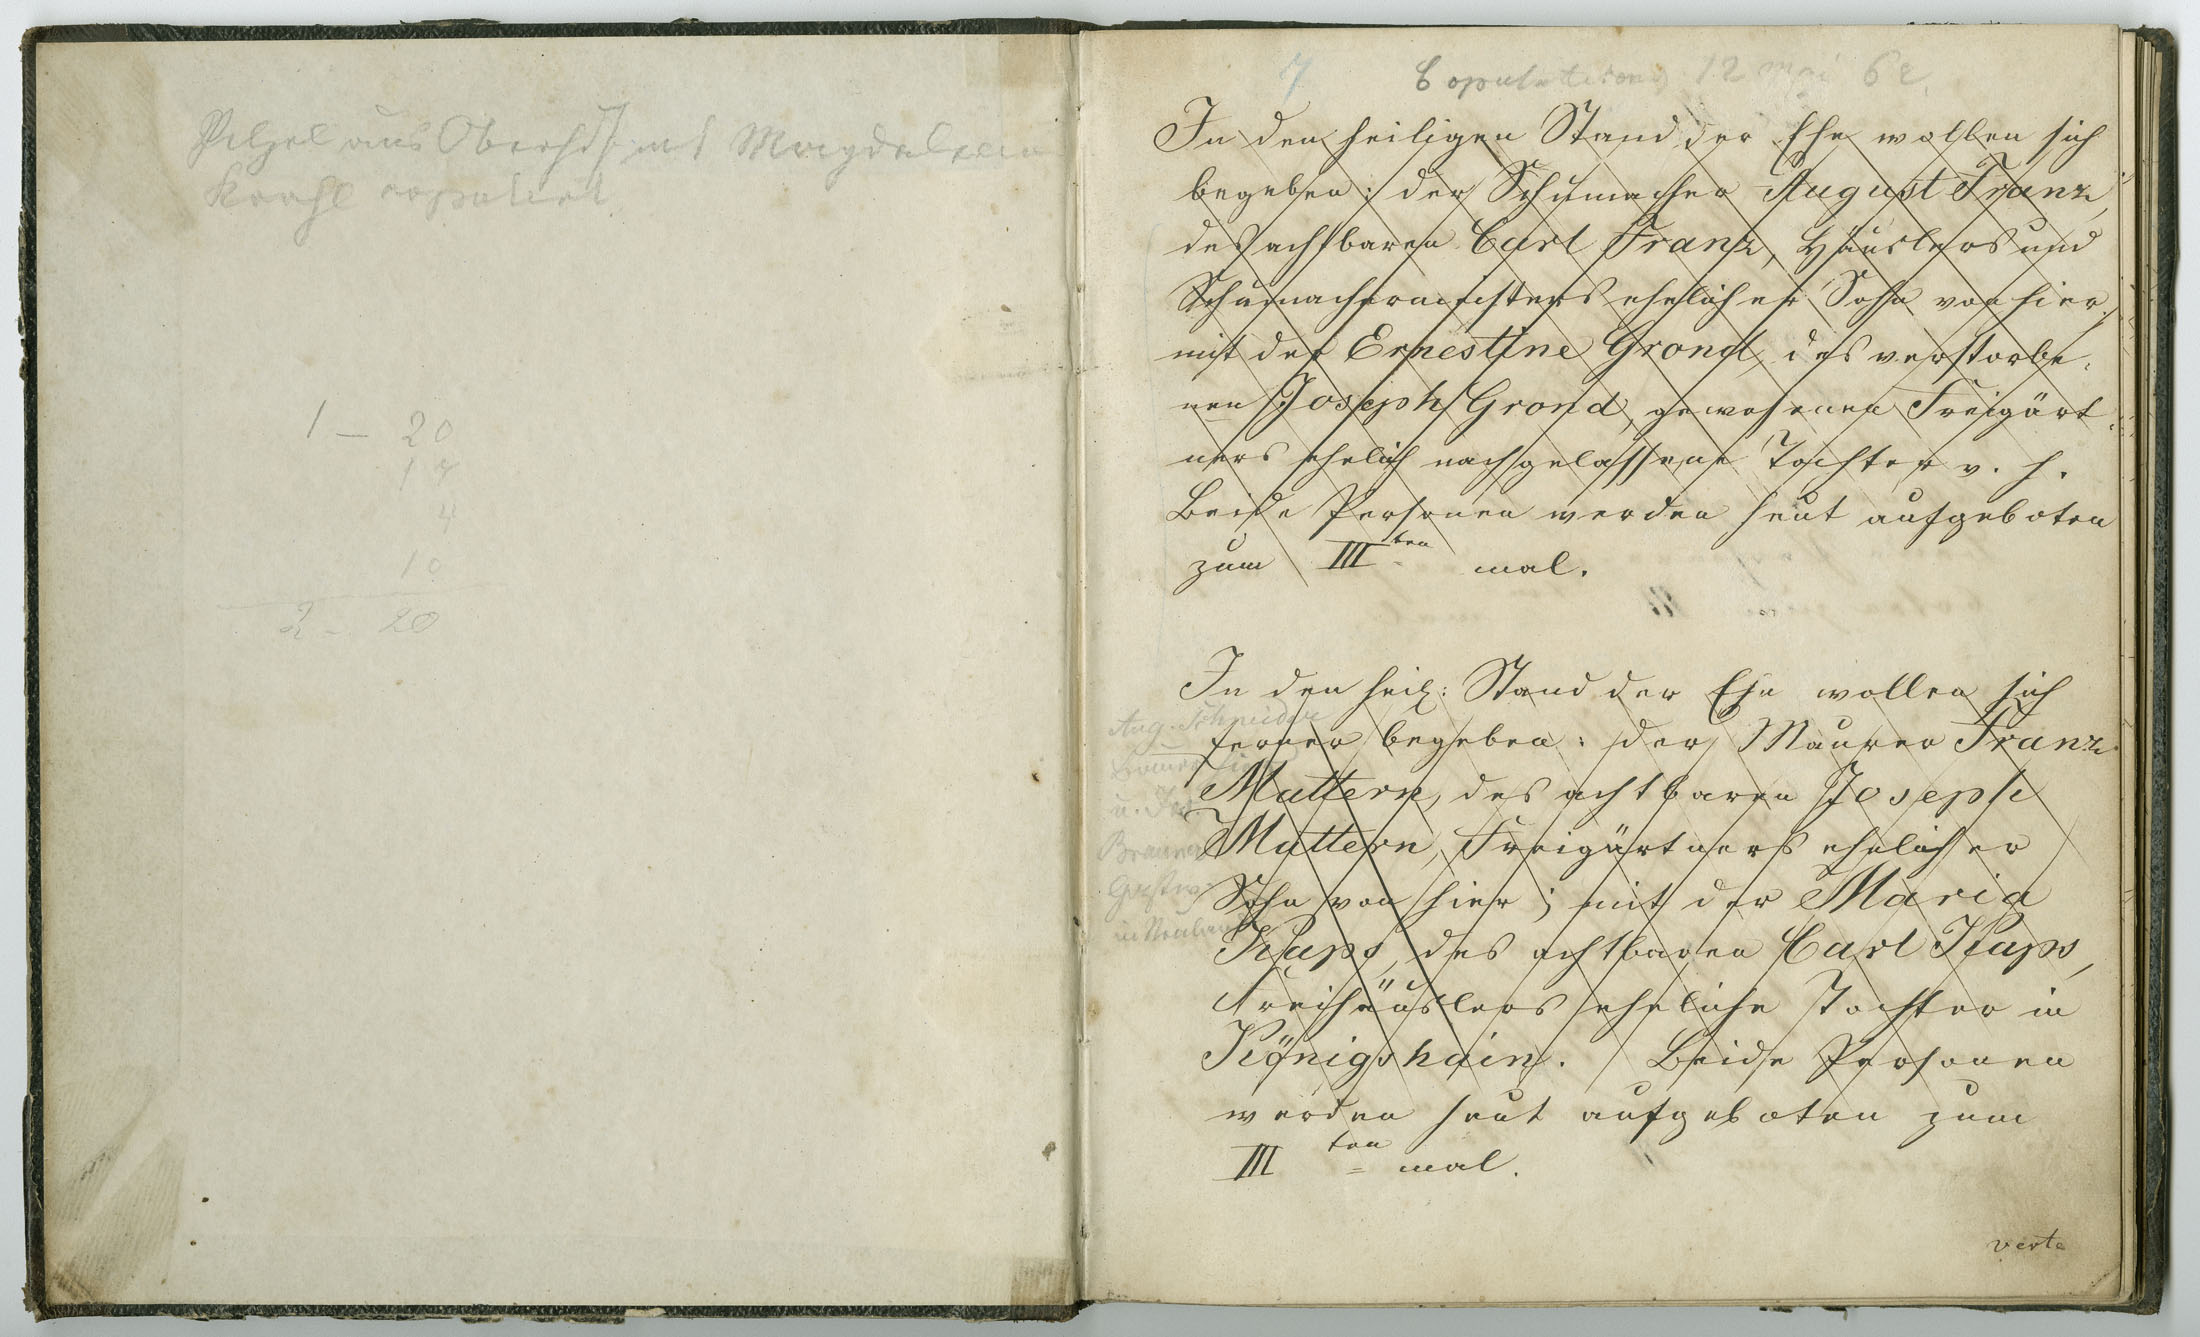 Pelzel aus Obershdf mit Magdalena
copuliert
1 — 20
4
10
2 — 20
7 Copulations 12 Mai 62.
In den heiligen Stand der Ehe wollen sich
begeben: der Schumacher August Franz,
des achtbaren Carl Franz, Häuslers und
Schumachermeisters ehelicher Sohn von hier,
mit der Ernestine Grond, des verstorbe-
nen Joseph Grond, gewesenen Freigärt-
ners ehelich nachgelassene Tochter v. h.
Beide Personen werden heut aufgeboten
zum III ten mal.
In den heil: Stand der Ehe wollen sich
ferner begeben: der Maurer Franz
Mattern, des achtbaren Joseph
Mattern, Freigärtners ehelicher
Sohn von hier; mit der Maria
Kaps, des achtbaren Carl Kaps,
Freihäuslers eheliche Tochter in
Königshain. Beide Personen
werden heut aufgeboten zum
III ten mal.
Aug. Schneider
u. Jos
Brauner
Gastw
in
verte